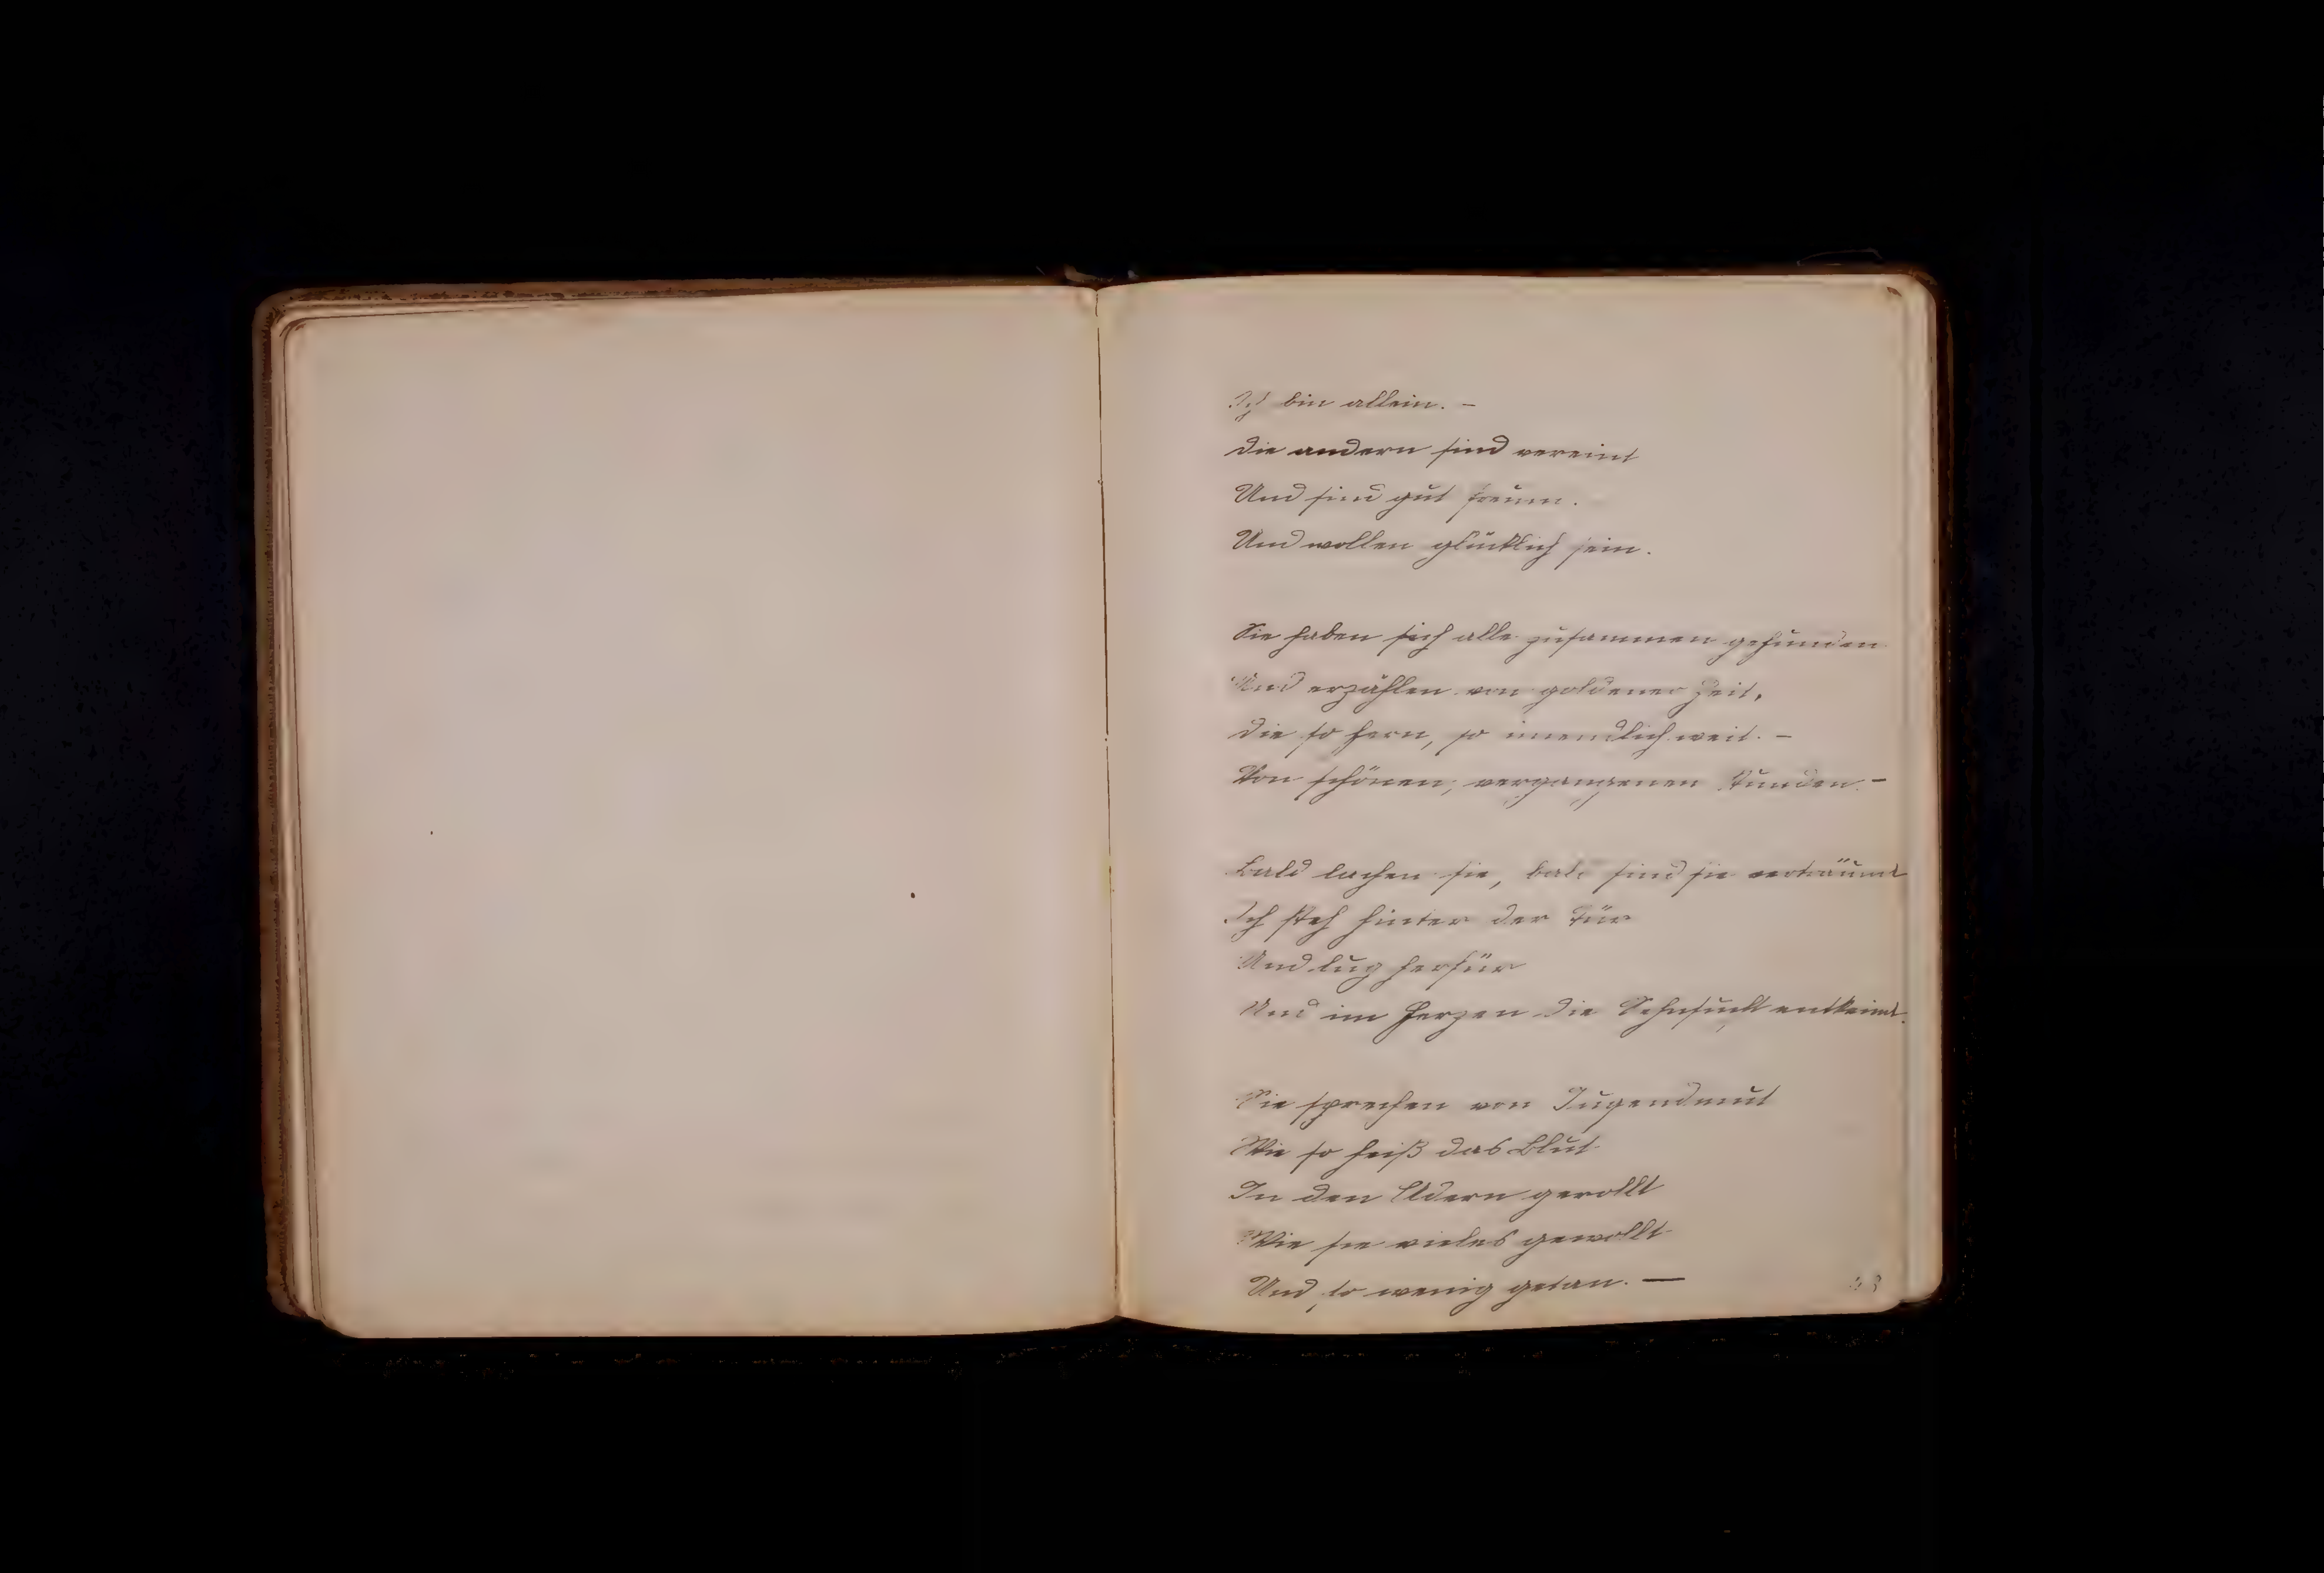 Ich bin allein. –
Die andern sind vereint
Und sind gut freund.
Und wollen glücklich sein.
Sie haben sich alle zusammen gefunden
Und erzählen von goldener Zeit,
Die so fern, so unendlich weit. –
Von schönen, vergangenen Stunden. –
Bald lachen sie, bald sind sie verträumt
Ich steh hinter der Tür
Und lug herfür
Und im Herzen die Sehnsucht entkeimt.
Sie sprechen von Jugendmut
Wie so heiß das Blut
In den Adern gerollt
Wie sie vieles gewollt
Und so wenig getan. —